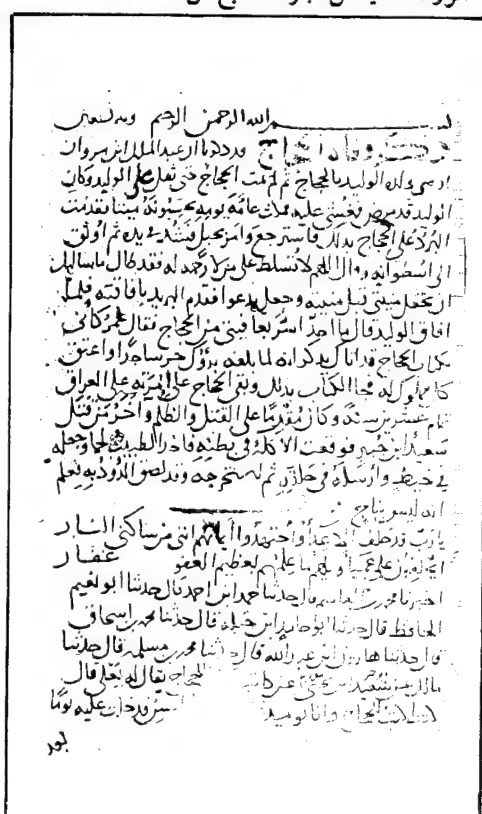 بسم الله الرحمن الرحيم وبه نستعين
وفاة الحجاج وقد ذكرنا ان عبد الملك ابن مروان
اوصى ولده الوليد بالحجاج ثم لم يمت الحجاج حتى ثقل على الوليد وكان
الوليد قد مرض فغشي عليه فمكث عامة يومه يحسبونه ميتا فقدمت
البرد على الحجاج بذلك فاسترجع وامر بحبل فشد في يده ثم اوثق
الى اسطوانة وقال اللهم لا تسلط علي من لا رحمة له فقد طال ما سالتك
ان تجعل منيتي قبل منيته وجعل يدعوا فقدم البريد بافاقته فلما
افاق الوليد قال ما احد اسر بعافيتي من الحجاج فقال عمر كاني
بكتاب الحجاج قد اتاك يذكر انه لما بلغه برؤك خر ساجدا واعتق
كل مملوك له فجا الكتاب بذلك وبقي الحجاج على امرته على العراق
تمام عشرين سنة وكان مقدما على القتل والظلم وآخر من قتل
سعيد ابن جبير فوقعت الاكلة في بطنه فاخذ الطبيب لحما وجعله
في خيط وارسله في حلقه ثم استخرجه وقد لصق الدود به فعلم
انه ليس بناج
يا رب قد حلف الاعدآ واجتهدوا ايمانهم انني من ساكني النار
ايحلفون على عميا ويحهم ما علمهم بعظيم العفو غفار
اخبرنا محمد قال حدثنا حمد ابن احمد قال حدثنا ابو نعيم
الحافظ قال حدثنا ابو حامد ابن جبلة قال حدثنا محمد بن اسحاق
قال حدثنا هارون ابن عبد الله قال حدثنا محمد بن مسلمة قال حدثنا
مالك بن سعيد الحجاج يقال له يعلى قال
الحجاج وانا يوميذ فدخلت عليه يوما